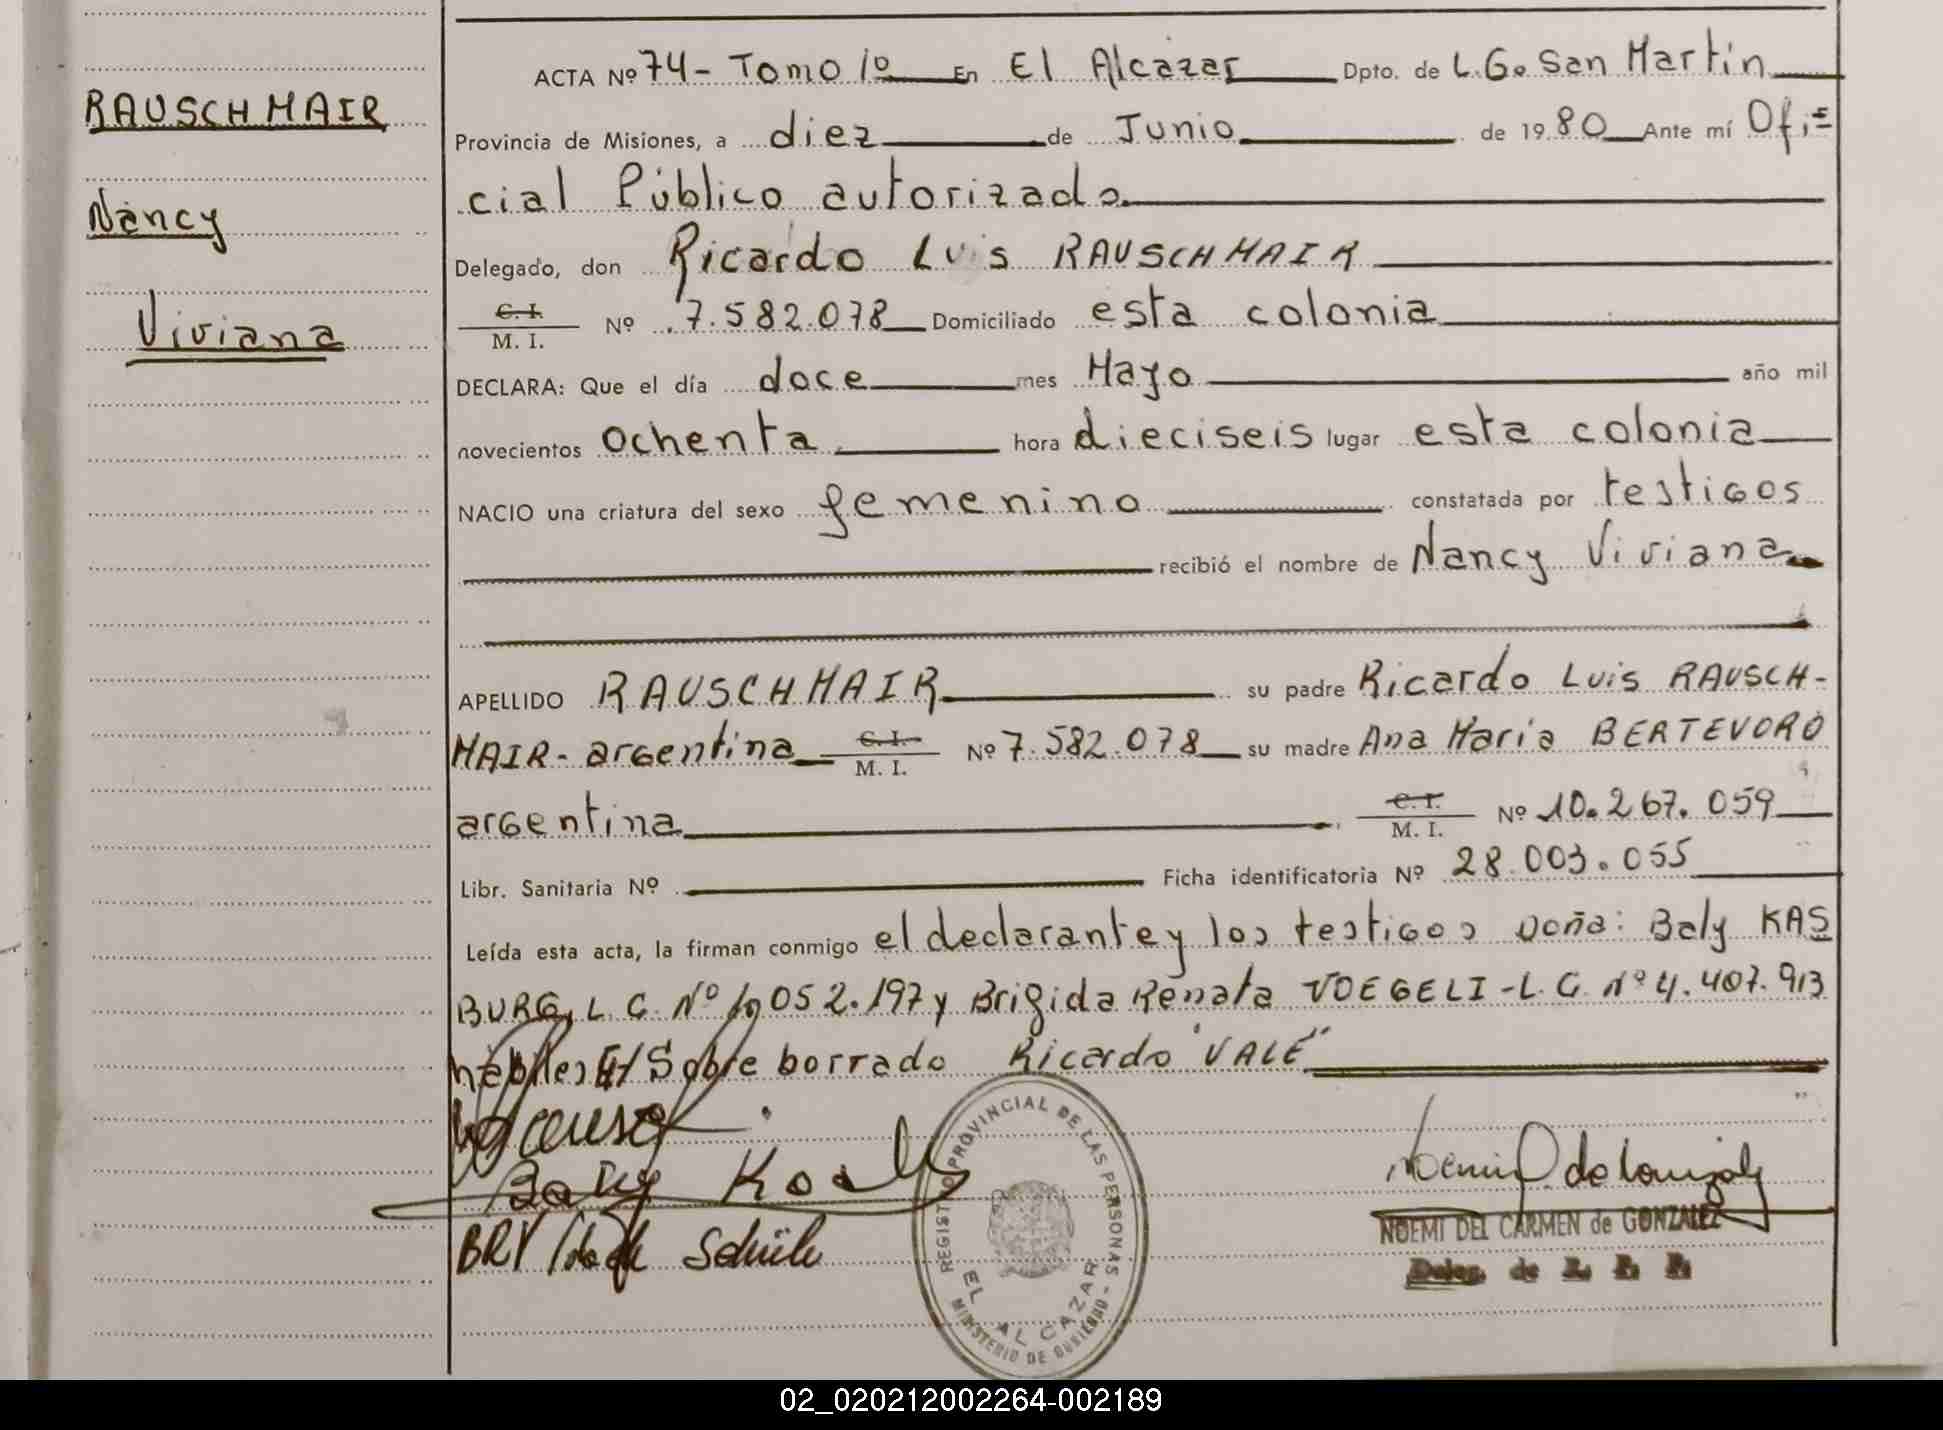 RAUSCHMAIR
Nancy
Viviana
ACTA Nº 74- Tomo 1º En El Alcazar Dpto. de L.G. San Martín
Provincia de Misiones, a diez de Junio de 1980 Ante mí Ofi=
cial Público autorizado
Delegado, don Ricardo Luis RAUSCHMAIR
C. I.
M. I. Nº 7.582.078 Domiciliado esta colonia
DECLARA: Que el día doce mes Mayo año mil
novecientos ochenta hora dieciseis lugar esta colonia
NACIO una criatura del sexo femenino constatada por testigos
recibió el nombre de Nancy Viviana
APELLIDO RAUSCHMAIR su padre Ricardo Luis RAUSCH-
MAIR- argentina C. I. M. I. Nº 7.582.078 su madre Ana Maria BERTEVORO
argentina C. I. M. I. Nº 10.267.059
Libr. Sanitaria Nº Ficha identificatoria Nº 28.003.055
Leída esta acta, la firman conmigo el declarante y los testigos Doña: Baly KAS
BURG, L. C. Nº 1.052.197 y Brigida Renata VOEGELI - L. C. Nº 4.407.913
habiles E/ Sobre borrado Ricardo "VALE"
REGISTRO PROVINCIAL DE LAS PERSONAS
EL ALCAZAR
MINISTERIO DE GOBIERNO
NOEMI DEL CARMEN de GONZALEZ
Deleg. de R. P. P.
02_020212002264-002189